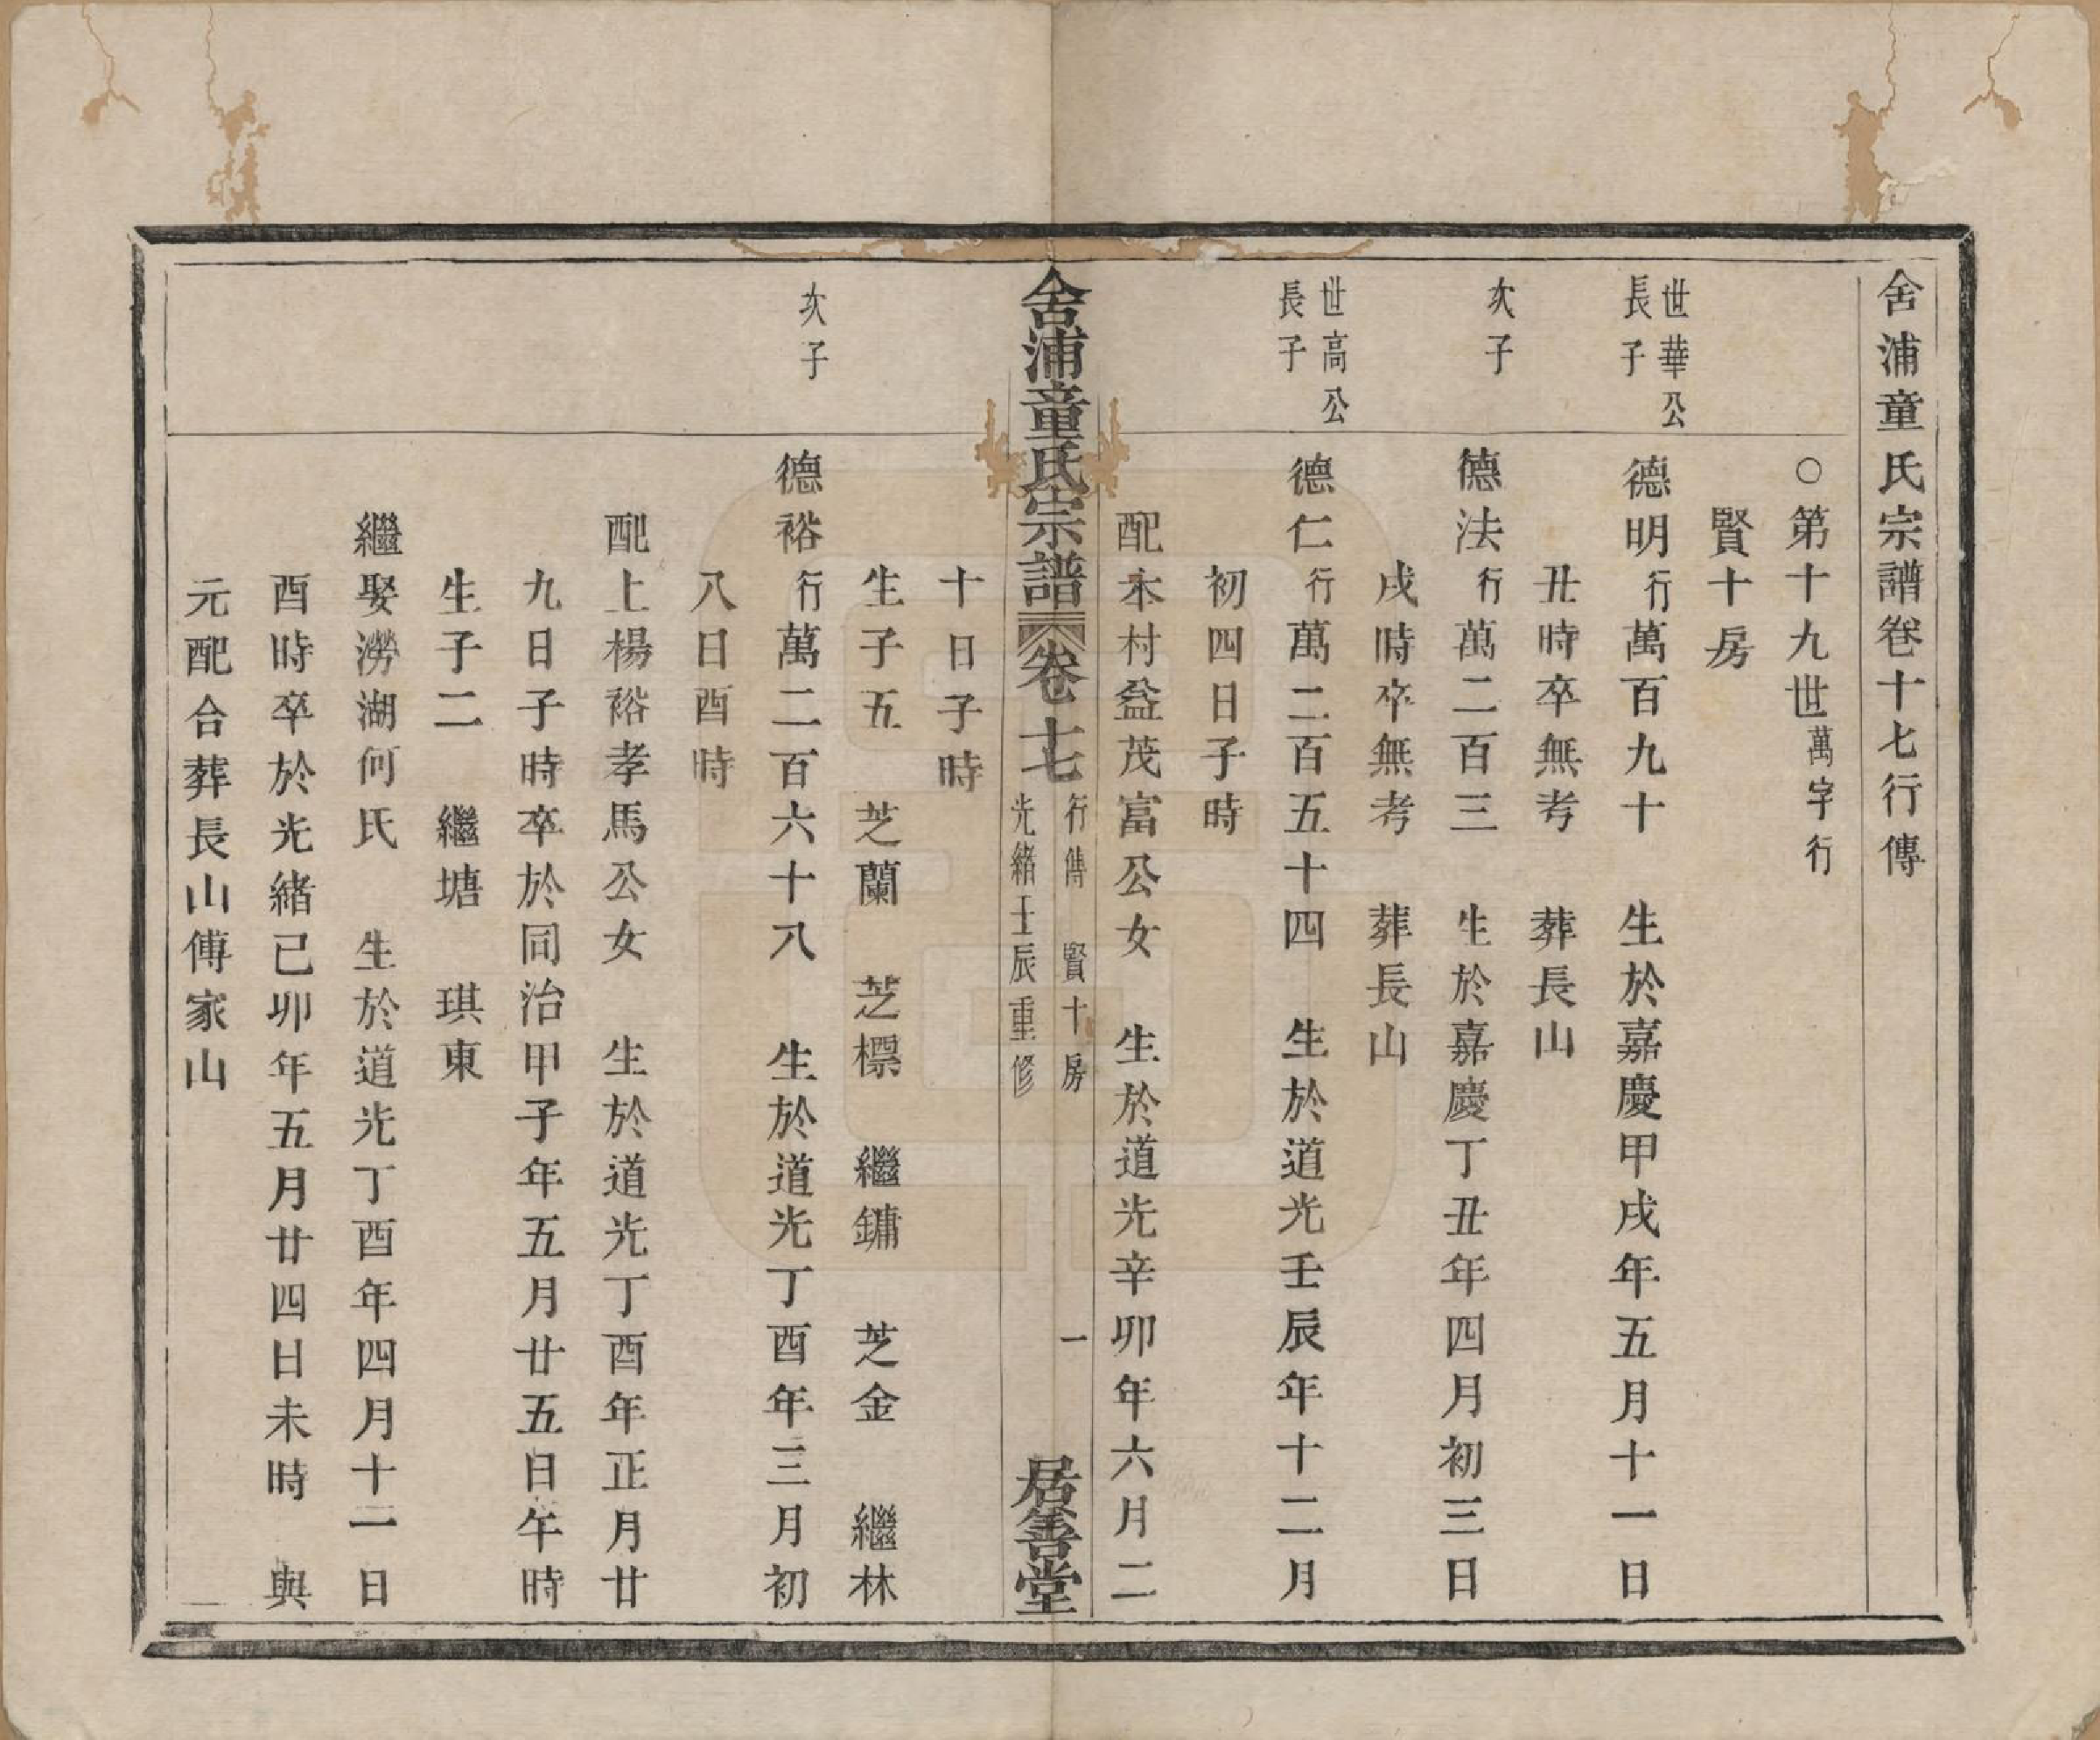 舍浦童氏宗譜卷十七行傳
○第十九世萬字行
賢十房
世華公
長子
德明行萬百九十　生於嘉慶甲戌年五月十一日
丑時卒無考　葬長山
次子
德法行萬二百三　生於嘉慶丁丑年四月初三日
戌時卒無考　葬長山
世高公
長子
德仁行萬二百五十四　生於道光壬辰年十二月
初四日子時
配木村益茂富公女　生於道光辛卯年六月二
舍浦童氏宗譜　卷十七　行傳　賢十房　一
光緒壬辰重修
居善堂
十日子時
生子五　芝蘭　芝標　繼鏞　芝金　繼林
次子
德裕行萬二百六十八　生於道光丁酉年三月初
八日酉時
配上楊裕孝馬公女　生於道光丁酉年正月廿
九日子時卒於同治甲子年五月廿五日午時
生子二　繼塘　琪東
繼娶澇湖何氏　生於道光丁酉年四月十二日
酉時卒於光緒己卯年五月廿四日未時　與
元配合葬長山傅家山